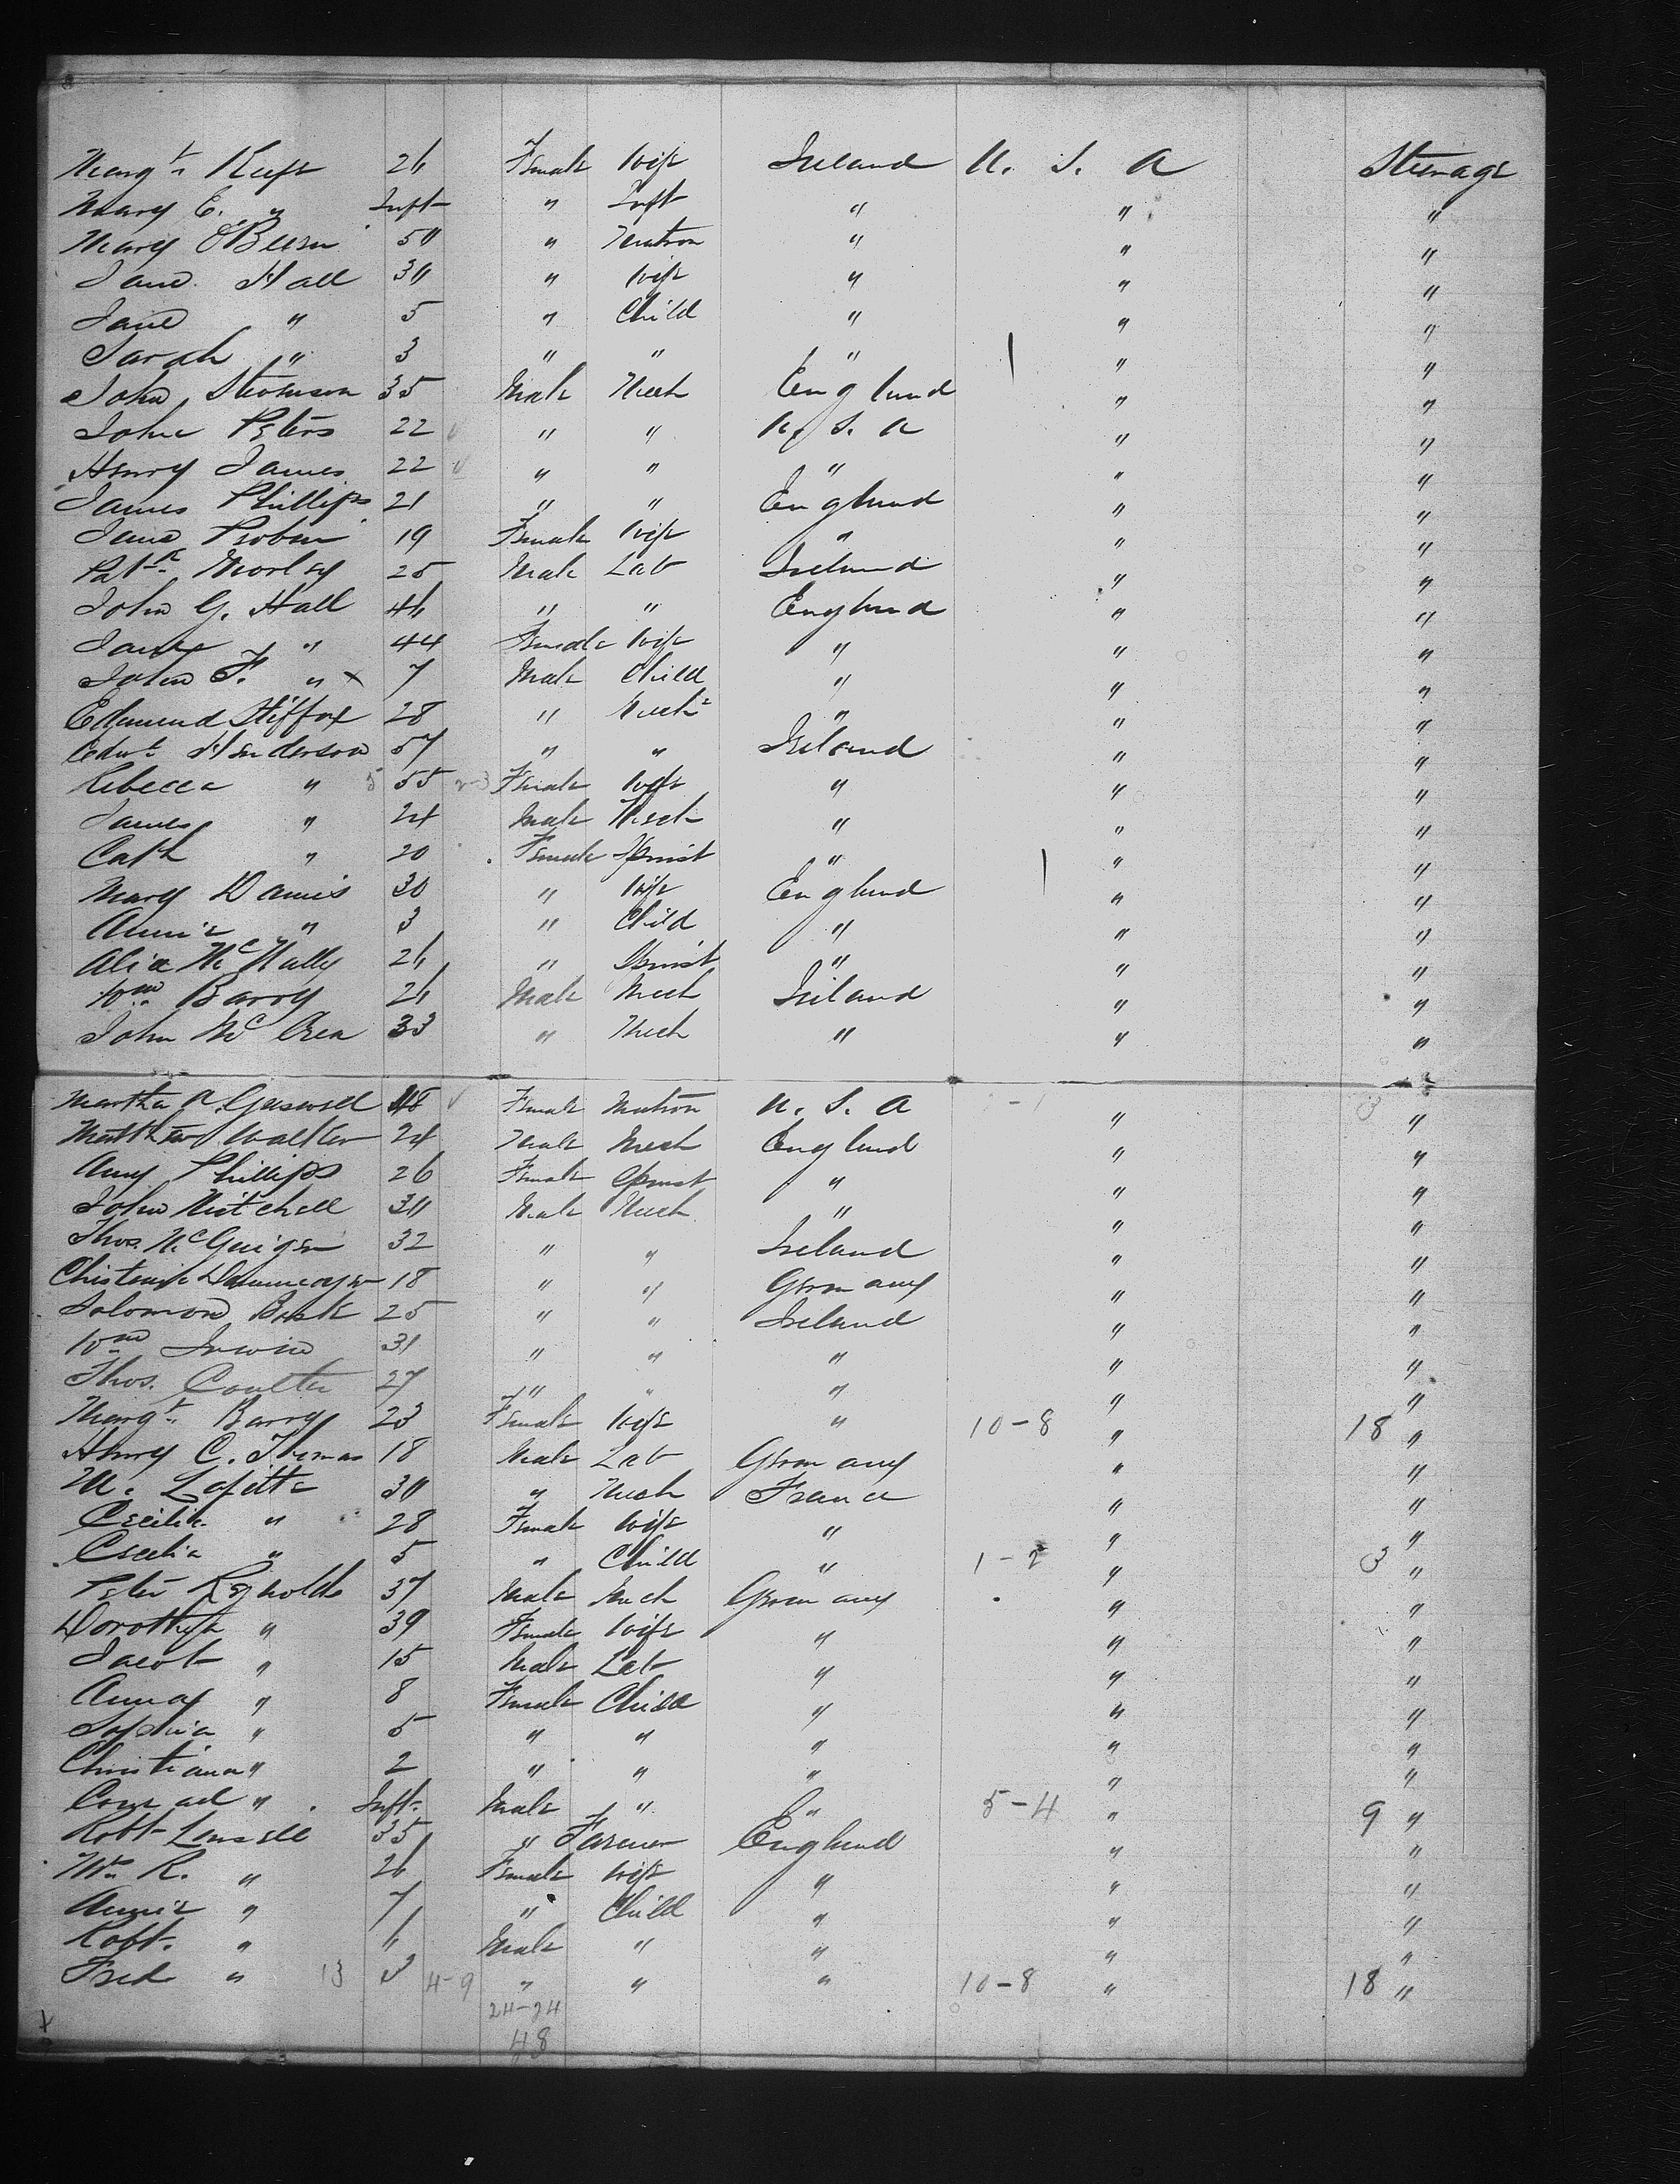 Margt. Keefe 26 Female Wife Ireland U. S. A Steerage
Mary E. " Inft " Inft " " "
Mary O'Beern 50 " Matron " " "
Jane Hall 30 " Wife " " "
Jane " 5 " Child " " "
Sarah " 3 " " " " "
John Thomson 35 Male Mech England " "
John Peters 22 " " U. S. A " "
Henry James 22 " " " " "
James Phillips 21 " " England " "
Jane 19 Female Wife " " "
Patk. Morley 25 Male Lab Ireland " "
John G. Hall 46 " " England " "
Jane " 44 Female Wife " " "
John F. " x 7 Male Child " " "
Edmund 28 " Mech " " "
Edwd. Henderson 57 " " Ireland " "
Rebecca " 5 55 2-3 Female Wife " " "
James " 24 Male Mech " " "
Cath " 20 Female Spinst " " "
Mary Davis 30 " Wife England " "
Annie " 3 " Child " " "
Alice McNally 26 " Spinst " " "
Wm. Barry 26 Male Mech Ireland " "
John McCrea 33 " Mech " " "
Martha A. 48 Female Matron U. S. A " 3 "
Matthew Walker 24 Male Mech England " "
Amy Phillips 26 Female Spinst " " "
John Mitchell 30 Male Mech " " "
Thos. McGuigan 32 " " Ireland " "
18 " " Germany " "
Solomon 25 " " Ireland " "
Wm. Irwin 31 " " " " "
Thos. Coulter 27 " " " " "
Margt. Barry 23 Female Wife " 10-8 " 18 "
Henry C. Thomas 18 Male Lab Germany " "
M. Lafitte 30 " Mech France " "
Cecilia " 28 Female Wife " " "
Cecelia " 5 " Child " 1-2 " 3 "
Peter Reynolds 37 Male Mech Germany " "
Dorothea " 39 Female Wife " " "
Jacob " 15 Male Lab " " "
Anna " 8 Female Child " " "
Sophia " 5 " " " " "
Christiana " 2 " " " " "
Conrad " Inft. Male " " 5-4 " 9 "
Robt 35 " Farmer England " "
R. " 26 Female Wife " " "
Annie " 7 " Child " " "
Robt. " 6 Male " " " "
Fred " 13 3 4-9 " " " 10-8 " 18 "
24-24
48